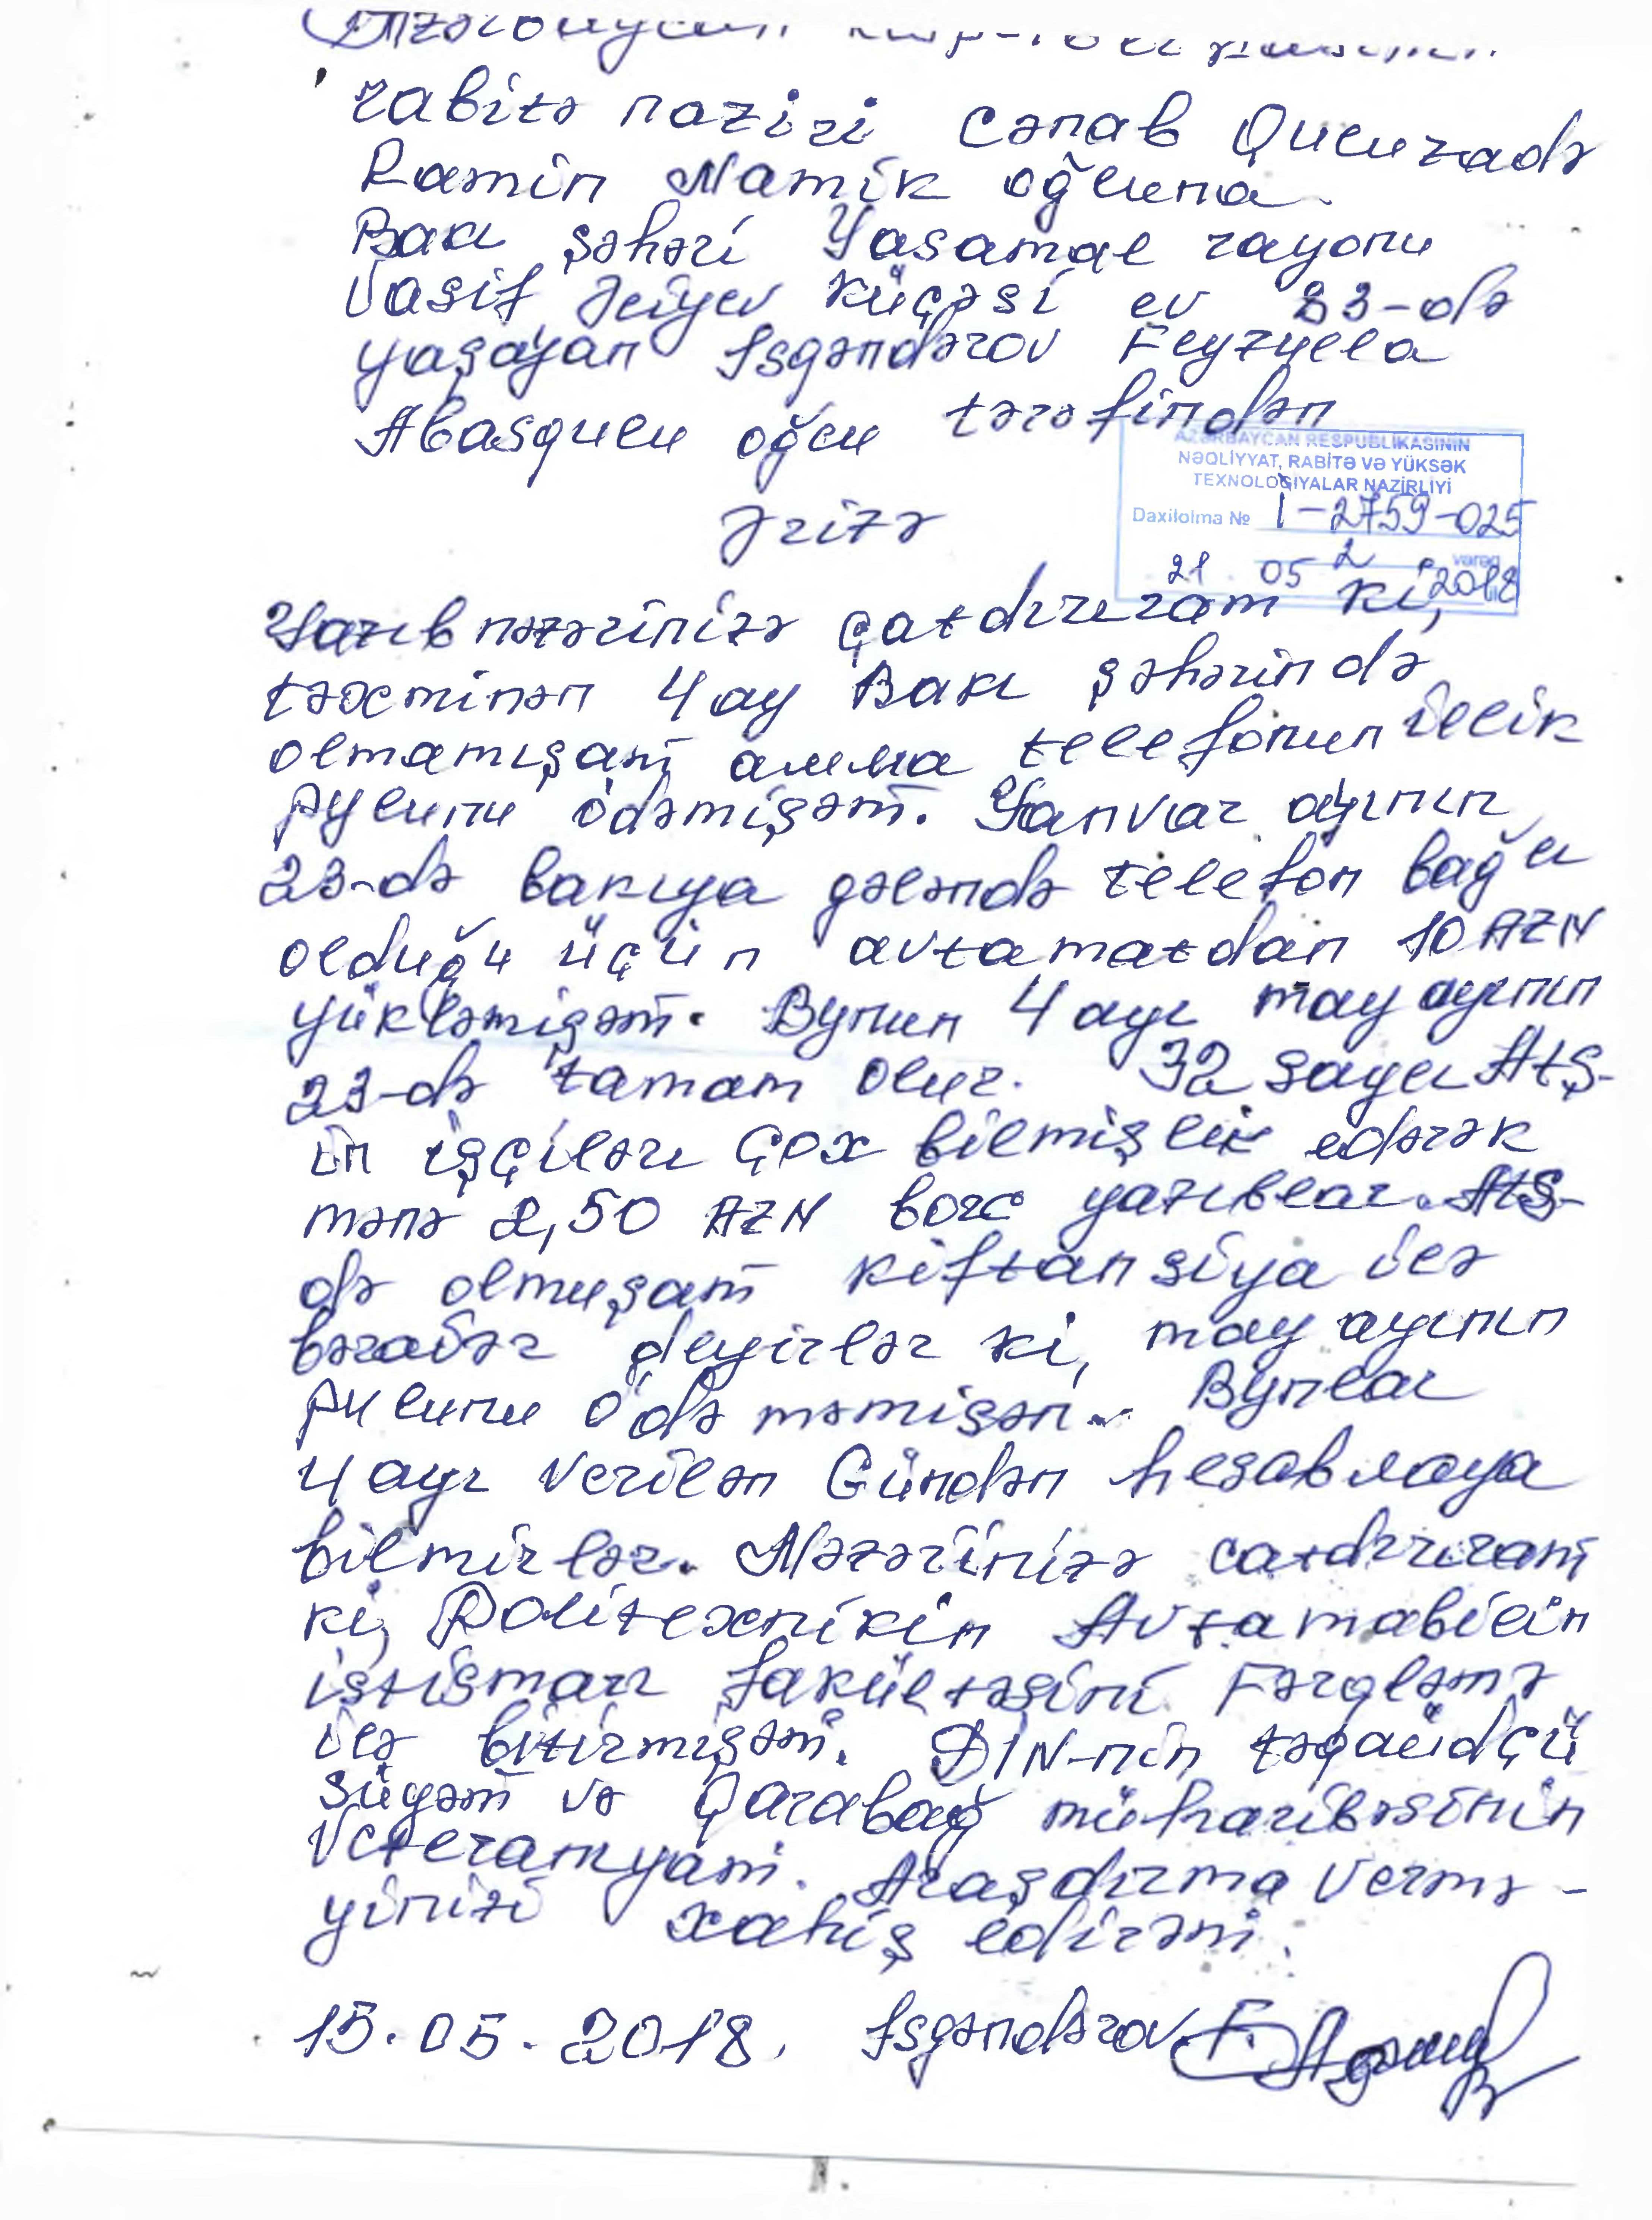 rabitə naziri Cənab Quluzadə
Ramin Namik oğluna.
Bakı şəhəri Yasamal rayonu
Vasif Əliyev küçəsi ev 83-də
yaşayan Isgəndərov Feyzulla
Abasqulu oğlu tərəfindən
AZƏRBAYCAN RESPUBLIKASININ
NƏQLİYYAT, RABİTƏ VƏ YÜKSƏK
TEXNOLOGIYALAR NAZİRLİYİ
Daxilolma № 1-2759-025
2 vərəq
21 05 2018
Ərizə
Yazıb nəzərinizə çatdırıram ki,
təxminən 4 ay Bakı şəhərində
olmamışam amma telefonun illik
pulunu ödəmişəm. Yanvar ayının
23-də bakıya gələndə telefon bağlı
olduğu üçün avtamatdan 10 AZN
yükləmişəm. Bunun 4 ayı may ayının
23-də tamam olur. 32 saylı AtŞ-
in işçiləri çox bilmişlik edərək
mənə 2,50 AZN borc yazıblar. AtŞ-
də olmuşam kiftansiya ilə
bərabər deyirlər ki, may ayının
pulunu ödəməmisən. Bunlar
4 ayı verilən Gündən hesablaya
bilmirlər. Nəzərinizə catdırıram
ki, Politexnikin Avtamabilin
istismarı fakültəsini Fərqləmə
ilə bitirmişəm. DIN-nin təqaüdçü
süyəm və Qarabağ müharibəsinin
Veteranıyam. Araşdırma vermə-
yinizi xahiş edirəm.
15.05.2018. Isgəndərov F.